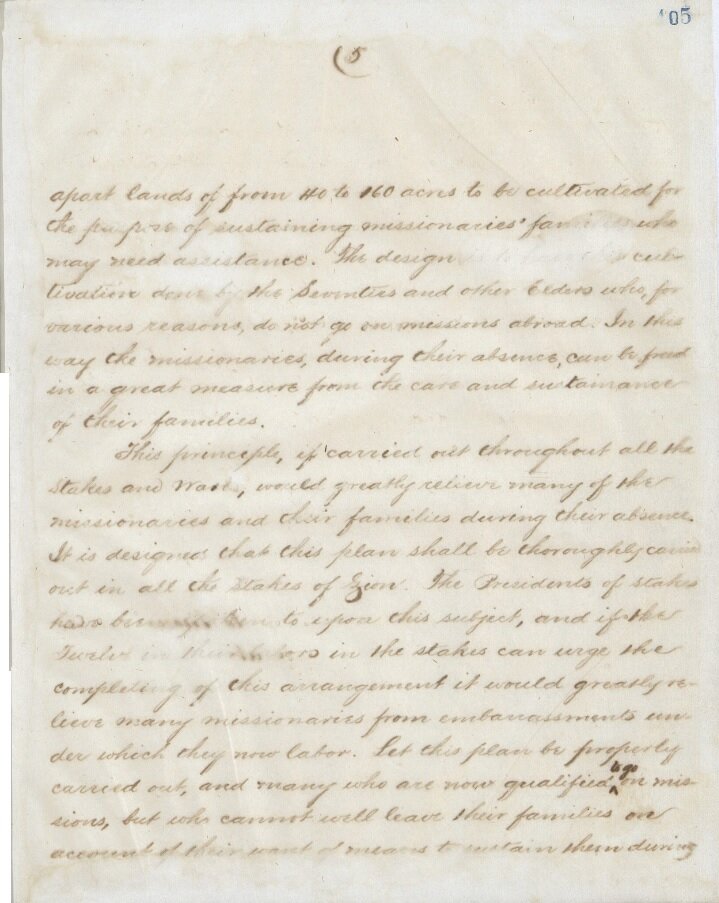 105
(5
apart lands of from 40 to 160 acres to be cultivated for
the purpose of sustaining missionaries' families who
may need assistance. The design is to have this cul-
tivation done by the Seventies and other Elders who, for
various reasons, do not go on missions abroad. In this
way the missionaries, during their absence, can be freed
in a great measure from the care and sustainance
of their families.
This principle, if carried out throughout all the
Stakes and Wards, would greatly relieve many of the
missionaries and their families during their absence.
It is designed that this plan shall be thoroughly carried
out in all the Stakes of Zion. The Presidents of Stakes
have been written to upon this subject, and if the
Twelve in their labors in the stakes can urge the
completing of this arrangement it would greatly re-
lieve many missionaries from embarrassments un-
der which they now labor. Let this plan be properly
carried out, and many who are now qualified to go on mis-
sions, but who cannot well leave their families on
account of their want of means to sustain them during